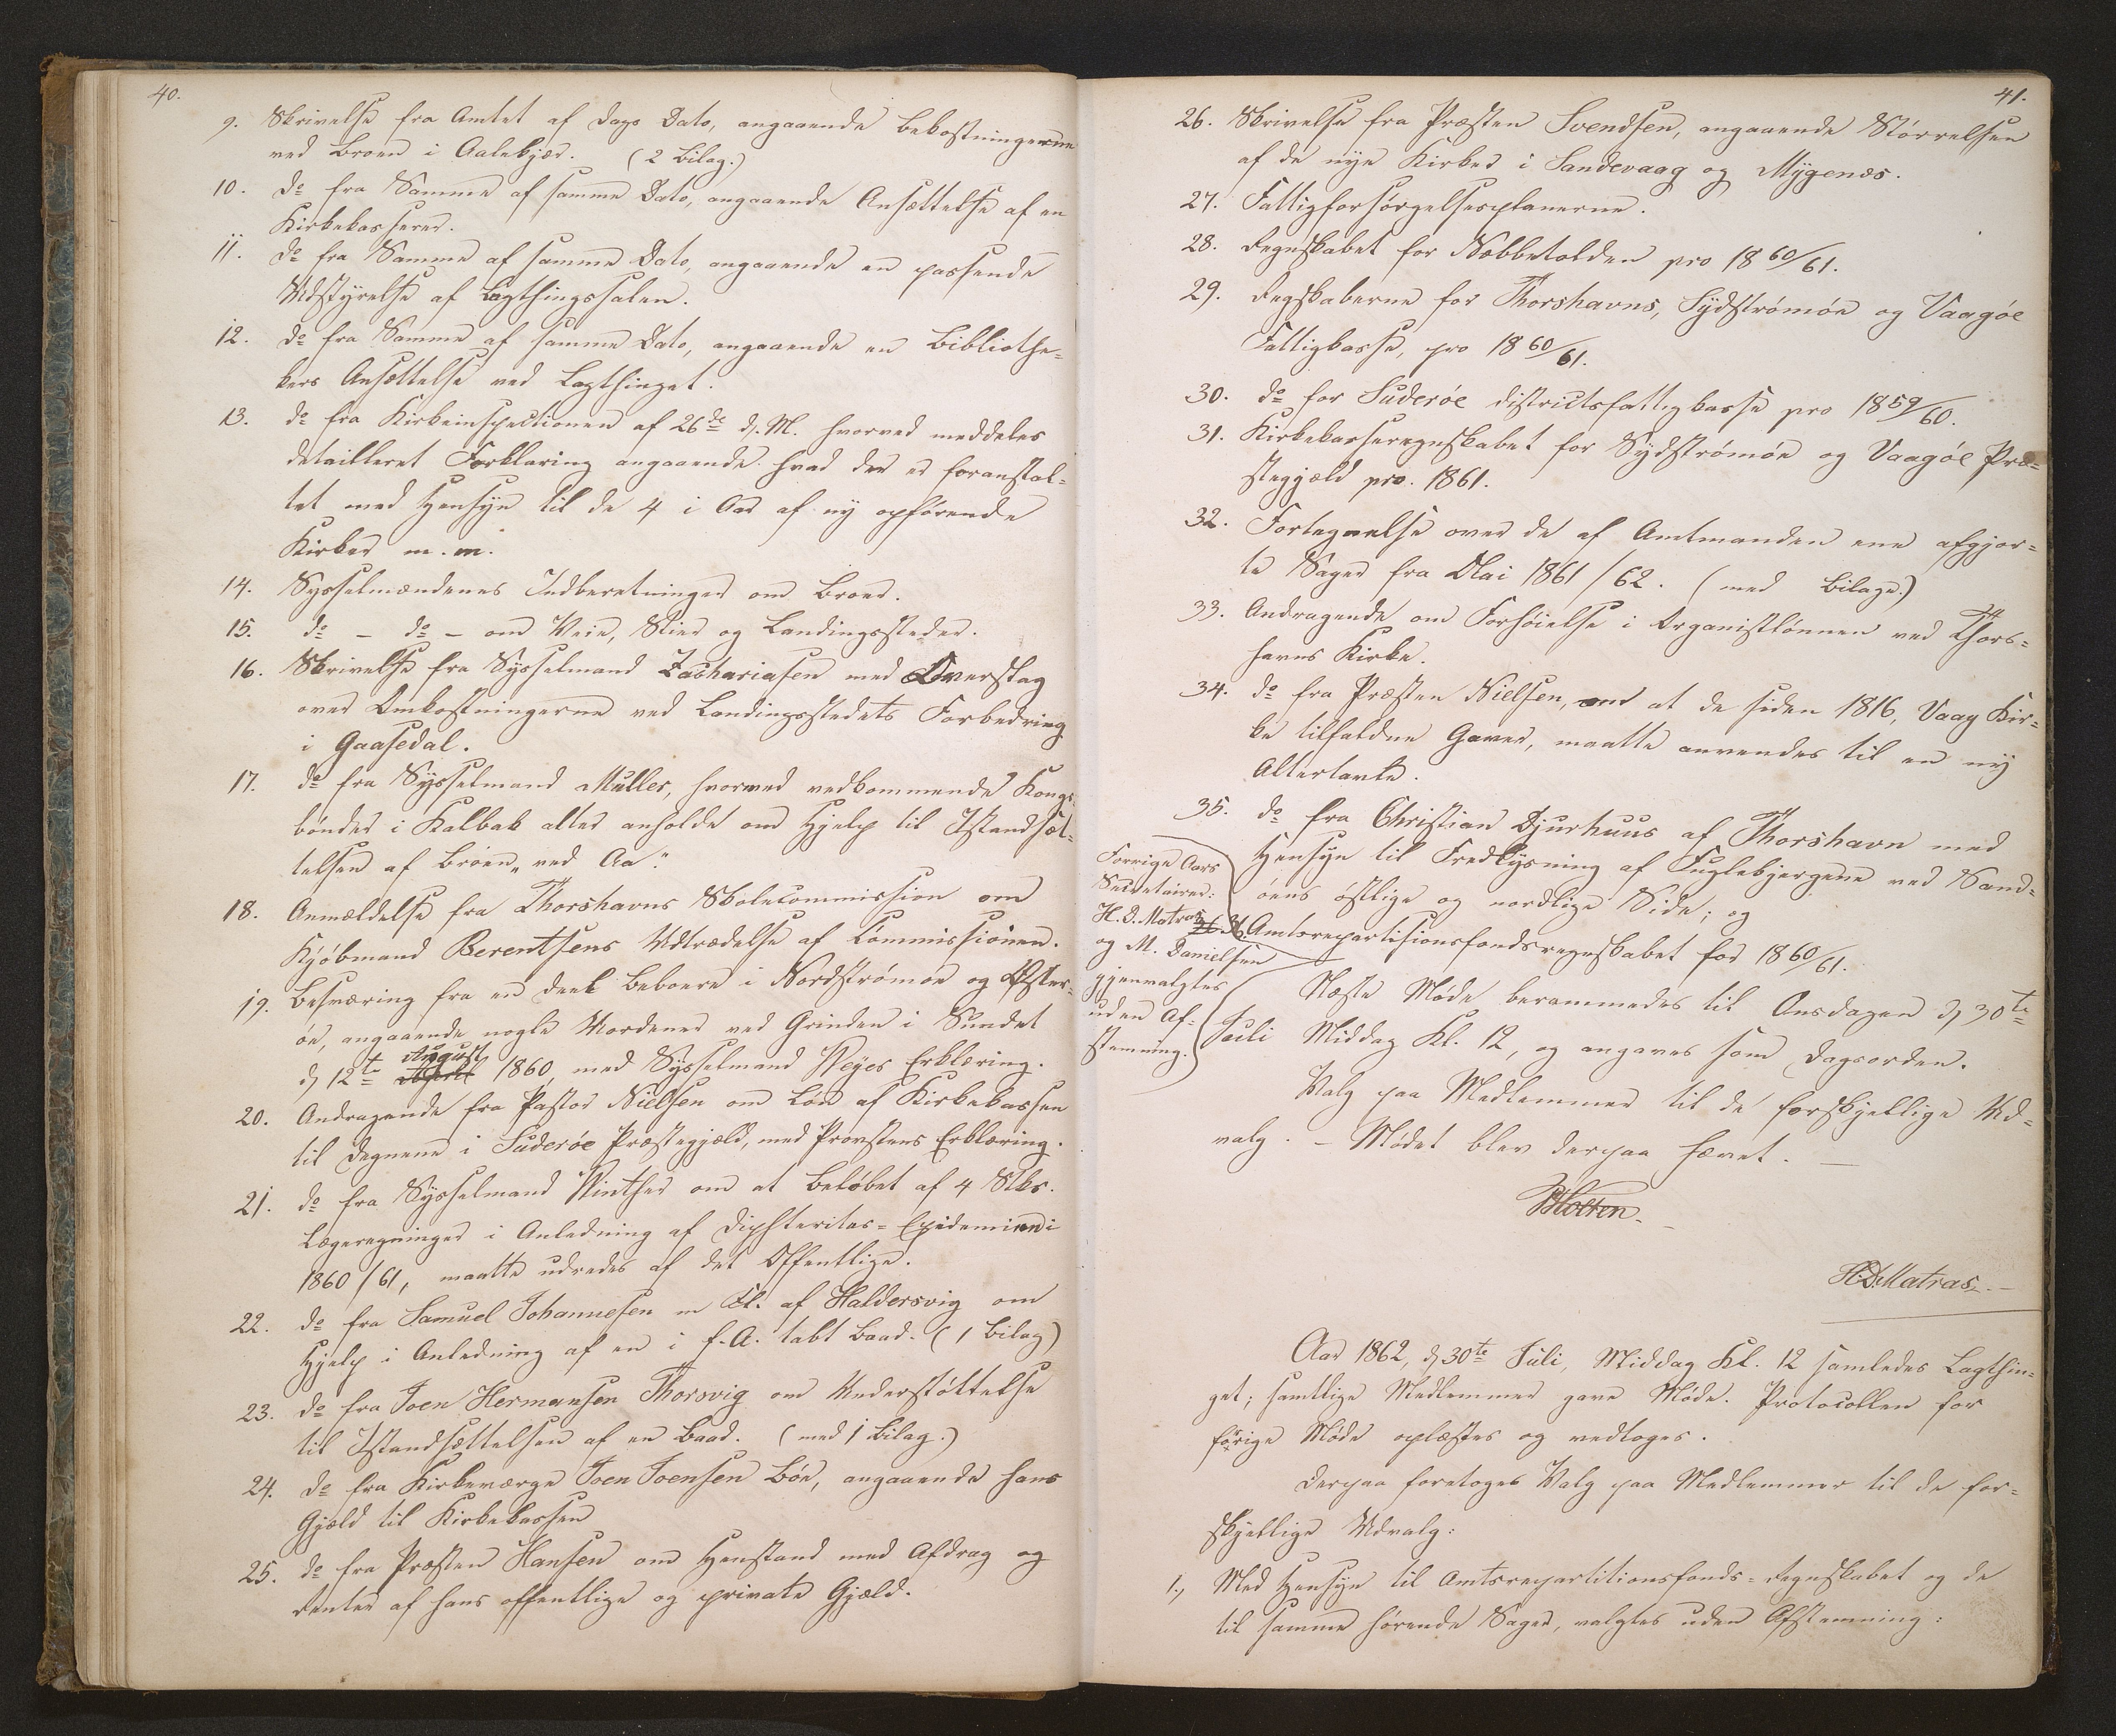 40.
9. Skrivelse fra Amtet af Dags Dato, angaaende Bekostningerne
ved Broen i Aalekjær. (2 Bilag.)
10. do fra Samme af samme Dato, angaaende Ansættelse af en
Kirkekasserer.
11. do fra Samme af samme Dato, angaaende en passende
Udstyrelse af Lagthingssalen.
12. do fra Samme af samme Dato, angaaende en Bibliothe-
kers Ansættelse ved Lagthinget.
13. do fra Kirkeinspectionen af 26de d. M. hvorved meddeles
detailleret Forklaring angaaende hvad der er foranstal-
tet med Hensyn til de 4 i Aar af ny opførende
Kirker m. m.
14. Sysselmændenes Indberetninger om Broer.
15. do - do - om Veie, Stier og Landingssteder.
16. Skrivelse fra Sysselmand Zachariasen med Overslag
over Omkostningerne ved Landingsstedets Forbedring
i Gaasedal.
17. do fra Sysselmand Müller, hvorved vedkommende Kongs-
bønder i Kalbak atter anholde om Hjelp til Istandsæt-
telsen af Broen „ved Aa“.
18. Anmældelse fra Thorshavns Skolecommission om
Kjøbmand Berentsens Udtrædelse af Commissionen.
19. Besværing fra en Deel Beboere i Nordstrømøe og Øster-
øe, angaaende nogle Mordener ved Grinden i Sundet
August
d. 12te April 1860, med Sysselmand Weyes Erklæring.
20. Andragende fra Pastor Nielsen om Løn af Kirkekassen
til Degnene i Suderøe Præstegjæld, med Provstens Erklæring.
21. do fra Sysselmand Winther om at Beløbet af 4 Stks.
Lægeregninger i Anledning af Diphteritas-Epidemien i
1860/61, maatte udredes af det Offentlige.
22. do fra Samuel Johannesen m. Fl. af Haldersvig om
Hjelp i Anledning af en i f. A. tabt Baad. (1 Bilag)
23. do fra Joen Hermansen Thorsvig om Understøttelse
til Istandsættelsen af en Baad. (med 1 Bilag.)
24. do fra Kirkeværge Joen Joensen Bøe, angaaende hans
Gjæld til Kirkekassen
25. do fra Præsten Hansen om Henstand med Afdrag og
Renter af hans offentlige og private Gjæld.
41.
26. Skrivelse fra Præsten Svendsen, angaaende Størrelsen
af de nye Kirker i Sandevaag og Mygenæs.
27. Fattigforsørgelsesplanerne.
28. Regnskabet for Næbbetolden pro 1860/61.
29. Regskaberne for Thorshavns, Sydstrømøe og Vaagøe
Fattigkasse, pro 1860/61.
30. do for Suderøe Districtsfattigkasse pro 1859/60.
31. Kirkekasseregnskabet for Sydstrømøe og Vaagøe Præ-
stegjæld pro. 1861.
32. Fortegnelse over de af Amtmanden ene afgjor-
te Sager fra Olai 1861/62. (med Bilage.)
33. Andragende om Forhøielse i Organistlønnen ved Thors-
havns Kirke.
34. do fra Præsten Nielsen, om at de siden 1816, Vaag Kir-
ke tilfaldne Gaver, maatte anvendes til en ny
Altertavle.
35. do fra Christian Djurhuus af Thorshavn med
Hensyn til Fredlysning af Fuglebjergene ved Sand-
øens østlige og nordlige Side; og
36. Amtsrepartitionsfondsregnskabet for 1860/61.
Forrige Aars
Secretairer:
H. D. Matras
og M. Danielsen
gjenvalgtes
uden Af-
stemning.
Næste Møde berammedes til Onsdagen d. 30te
Juli Middag Kl. 12, og angaves som Dagsorden.
Valg paa Medlemmer til de forskjellige Ud-
valg. - Mødet blev derpaa hævet. -
Holten.
H. D. Matras.
Aar 1862, d. 30te Juli, Middag Kl. 12 samledes Lagthin-
get; samtlige Medlemmer gave Møde. Protocollen for
forige Møde oplæstes og vedtoges.
Derpaa foretoges Valg paa Medlemmer til de for-
skjellige Udvalg:
1., Med Hensyn til Amtsrepartitionsfonds-Regnskabet og de
til samme hørende Sager, valgtes uden Afstemning: